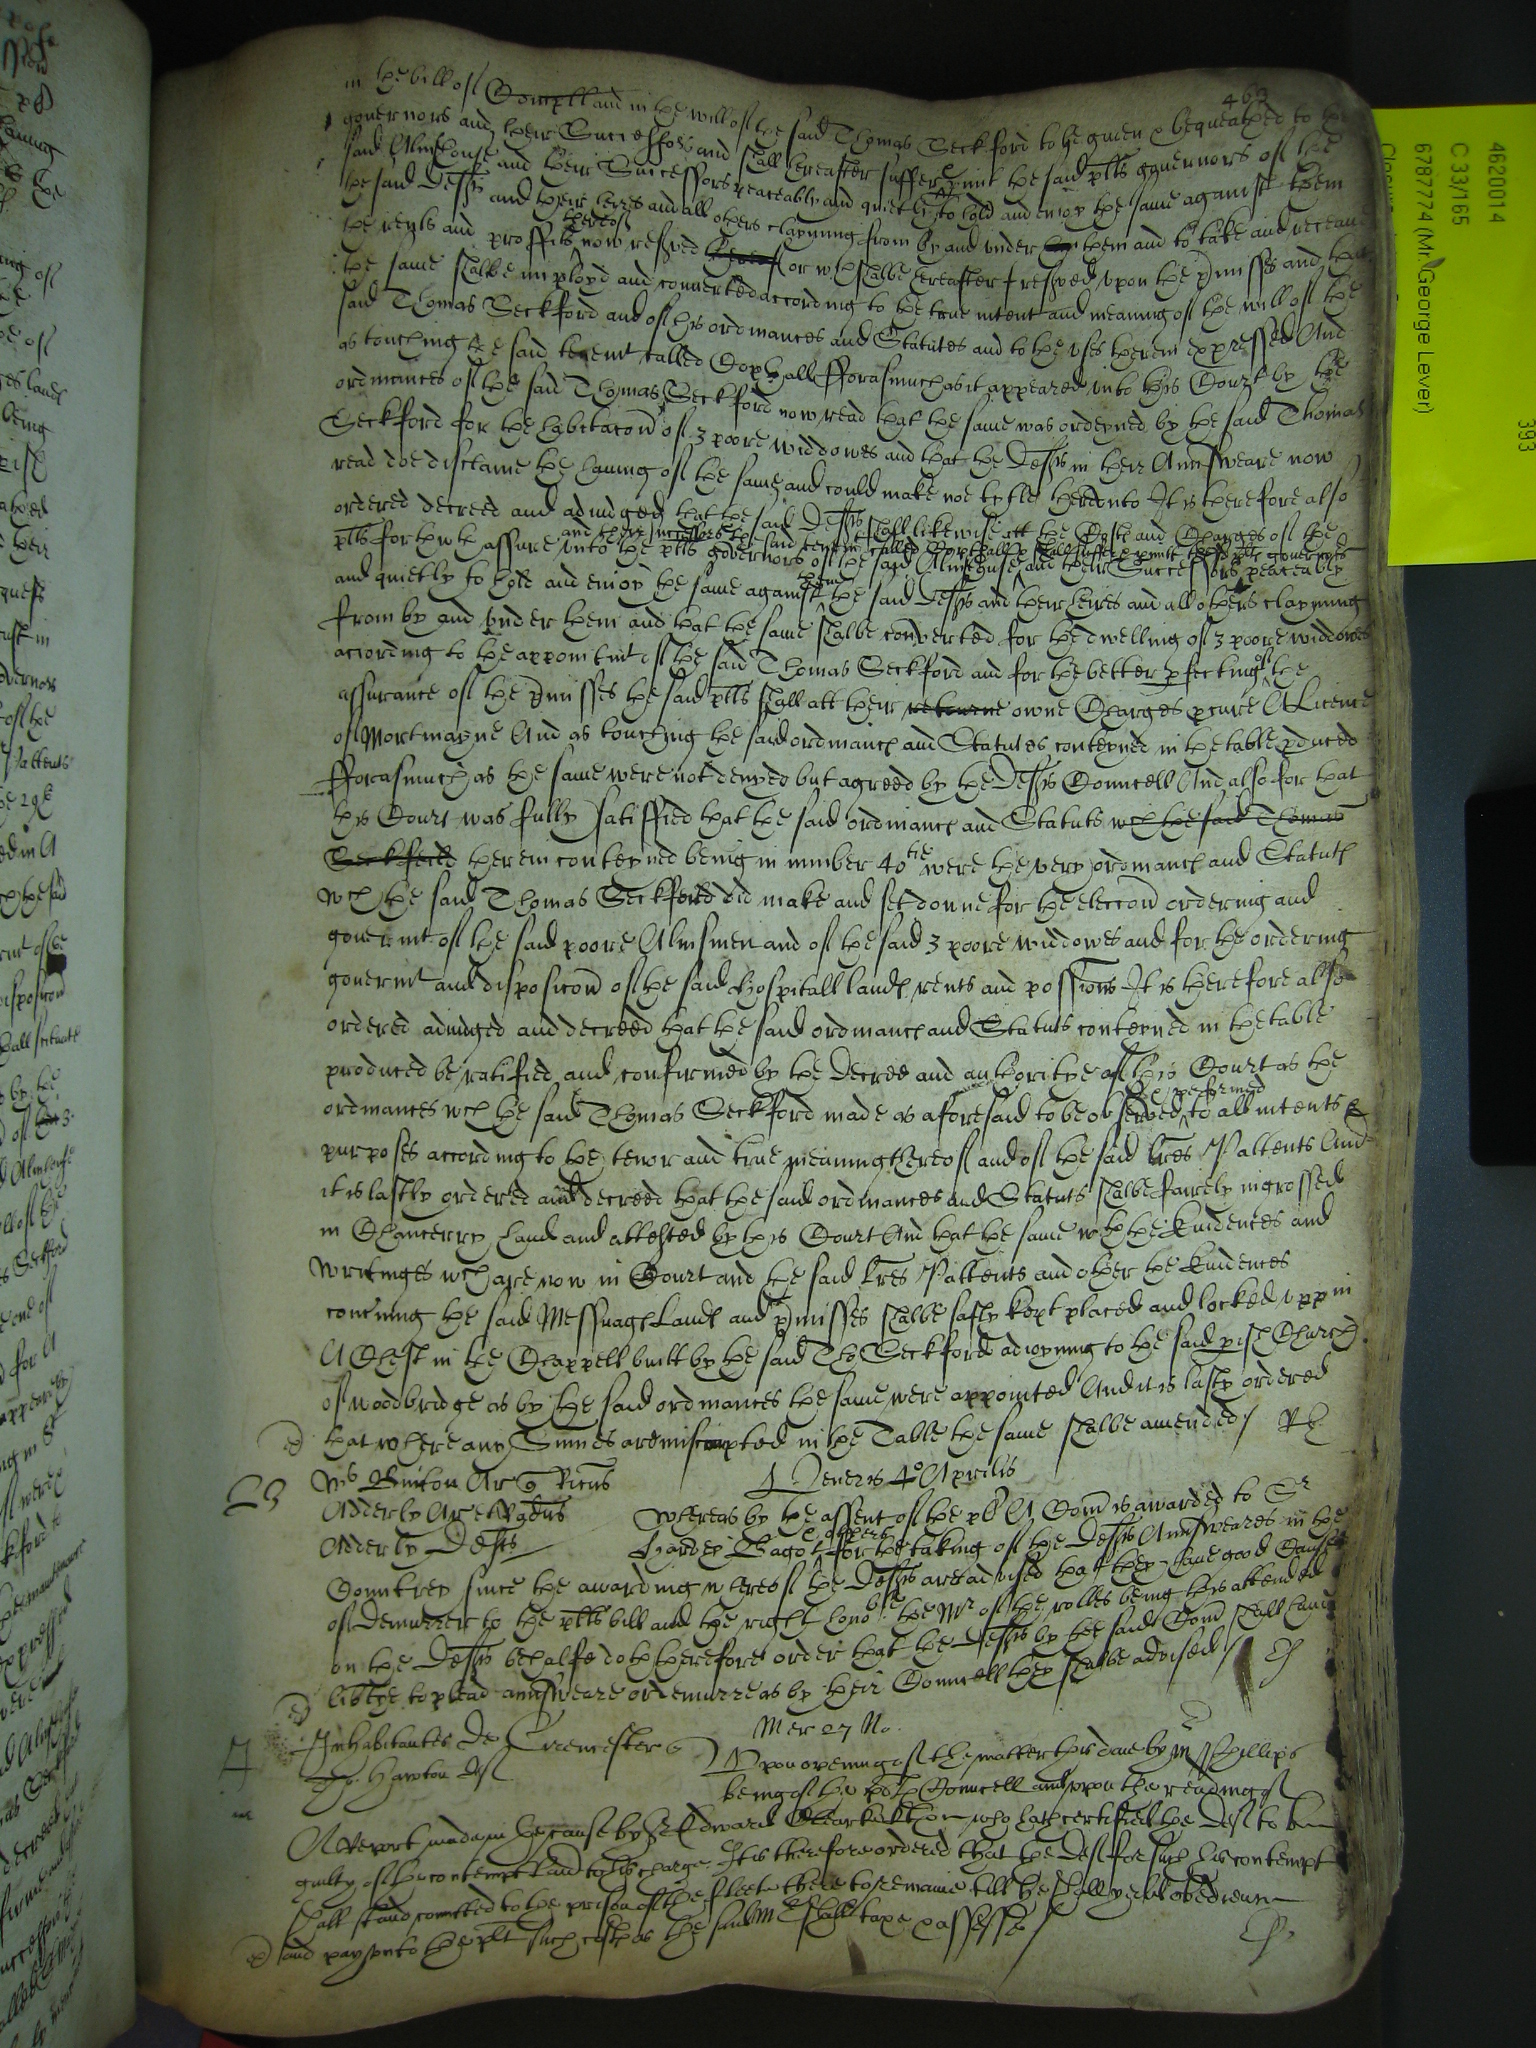 463
in the bill of Complt and in the will of the said Thomas Seckford to be given & bequeathed to the
governors and their Successors and shall hereafter suffer & pmit the said plts governors of the
said Almshouse and their Successors peaceably and quietly to hold and enioy the same against them
the said Defts and their heires and all others clayming from by and under them and to take and receave
the rents and proffits thereof now resved or wch shalbe hereafter resved upon the pmisses and that
the same shalbe imployd and converted according to the true intent and meaning of the will of the
said Thomas Seckford and of his ordinances and Statutes and to the uses therein expressed And
as touching the said tenemt called Copthall Fforasmuch as it appeared unto this Court by the
ordinances of the said Thomas Seckford now read that the same was ordeyned by the said Thomas
Seckford for the habitacon of 3 poore widdowes and that the Defts in their Aunsweare now
read doe disclaime the having of the same and could make noe tytle thereunto It is therefore also
ordered decreed and adiudged that the said Defts shall likewise att the Costs and Charges of the
plts forthwth assure unto the plts governors of the said Almshouse and their Successors
and their successors the said tenemt called Copthall & shall suffer & pmit the said plts governors peaceably
and quietly to hold and enioy the same against them the said Defts and their heires and all others clayming
from by and under them and that the same shalbe converted for the dwelling of 3 poore widdowes
according to the appointmt of the said Thomas Seckford and for the better pfecting of the
assurance of the pmisses the said plts shall att their owne Charges pcure A Licence
of Mortmayne And as touching the said ordinancs and Statutes conteyned in the table pduced
Fforasmuch as the same were not denyed but agreed by the Defts Councell And also for that
this Court was fully satisfied that the said ordinancs and Statuts wch the said Thomas
Seckford therein conteyned being in number 40tie were the very ordinancs and Statuts
wch the said Thomas Seckford did make and set downe for the eleccon ordering and
governmt of the said poore Almsmen and of the said 3 poore widdowes and for the ordering
governmt and disposicon of the said hospitall lands rents and possessions It is therefore also
ordered adiudged and decreed that the said ordinancs and Statuts conteyned in the table
produced be ratified and confirmed by the Decree and authoritye of this Court as the
ordinances wch the said Thomas Seckford made as aforesaid to be observed & performed to all intents &
purposes according to the tenor and true meaning thereof and of the said lres Pattents And
it is lastly ordered and decreed that the said ordinances and Statuts shalbe fairely ingrossed
in Chancerry hand and attested by this Court And that the same wth the Evidences and
writinges wch are now in Court and the said lres Pattents and other the Evidences
concning the said Messuags Lands and pmisses shalbe safly kept placed and locked upp in
A Chest in the Chappell built by the said Tho Seckford adioyning to the said pish Church
of woodbridge as by the said ordinances the same were appointed And it is lastly ordered
that where any Summes are miscompted in the Table the same shalbe amended
Adderly Ar et
Adderly Defts
Veneris 4o Aprilis
Whereas by the assent of the plt A Comn is awarded to Sr
Harvey Bagot & others for the taking of the Defts Aunsweares in the
Countrey since the awarding whereof the Defts are advised that they have good Cause
of Demurrer to the plts bill and the right honoble the Mr of the rolles being this attended
on the Defts behalfe doth therefore order that the Defts by the said Comn shall have
libtye to plead aunsweare or demurre as by their Councell they shalbe advised
Mer 27 No.
Inhabitantes De Cirencester
Deft
Upon opening of the matter this daie by Mr Phillips
being of the plts Councell and upon the reading of
A Report made in the cause by Sr Edward Clarke who hath certified the Deft to be
guilty of the contempt laid to his charge. It is therefore ordered that the Deft for such his contempt
shall stand comitted to the prison of the fleete there to remaine till he shall yeald obedience
and pay unto the plt such costs as the said Mr shall taxe & assesse
4620014
C 33/165
6787774 (Mr. George Lever)
393